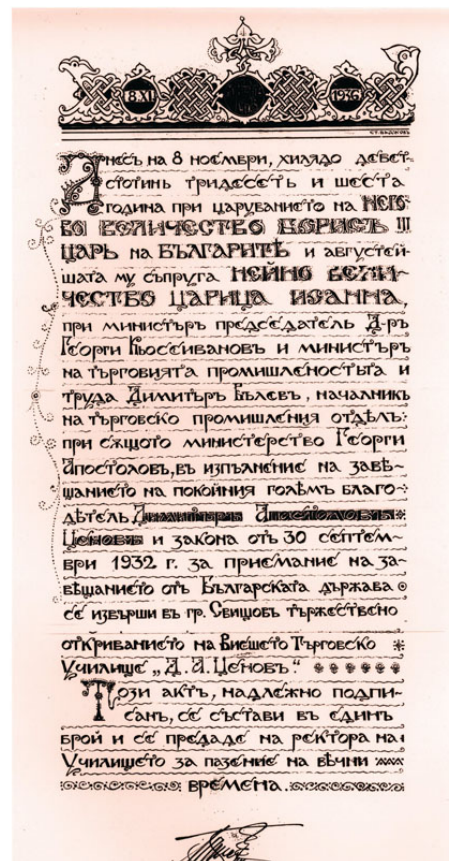 8.XI.
1936
СТ. БАДЖОВЪ
Днесь на 8 ноемврий, хилядо девет-
стотинъ тридесеть и шеста
година при царуването на НЕГО-
ВО ВЕЛИЧЕСТВО БОРИСЪ III
ЦАРЬ на БЪЛГАРИТѢ и августей-
шата му съпруга НЕЙНО ВЕЛИ-
ЧЕСТВО ЦАРИЦА ИОАННА,
при министъръ председатель Д-ръ
Георги Кьосеивановъ и министъръ
на търговията промишленостьта и
труда Димитъръ Вълевъ, началникъ
на търговско промишления отдѣлъ:
при сѫщото министерство Георги
Апостоловъ, въ изпълнение на завѣ-
щанието на покойния голѣмъ благо-
дѣтель Димитъръ Апостоловъ
Ценовъ и закона отъ 30 септем-
ври 1932 г. за приемание на за-
вѣщанието отъ Българската държава
се извърши въ гр. Свищовъ тържествено
откриванието на Висшето Търговско
Училище „Д. А. Ценовъ."
Този актъ, надлежно подпи-
санъ, се състави въ единъ
брой и се предаде на ректора на
Училището за пазение на вѣчни
времена.